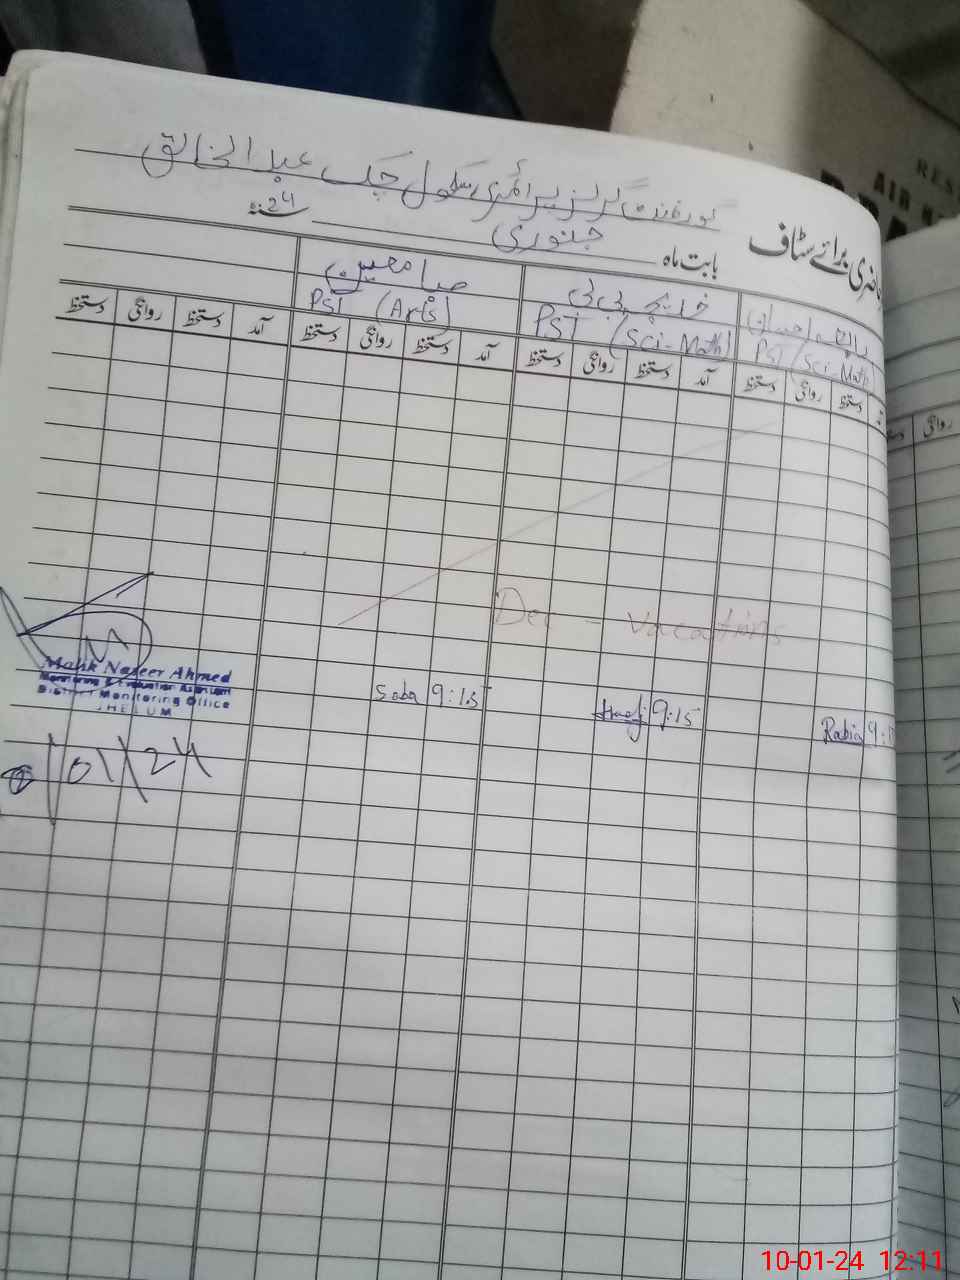 گورنمنٹ گرلز پرائمری سکول چک عبدالخالق
حاضری برائے سٹاف
بابت ماہ جنوری سنہ 24
رابعہ احسان خدیجہ بی بی صبا معین
PST (Sci-Math) PST (Sci-Math) PST (Arts)
دستخط روانگی دستخط آمد دستخط روانگی دستخط آمد دستخط روانگی دستخط آمد دستخط روانگی دستخط
Dec - Vacations
Malik Naseer Ahmed
Monitoring & Evaluation Assistant
District Monitoring Office
JHELUM
Saba 9:15 9:15 Rabia
/01/24
RES
AIR
10-01-24 12:11